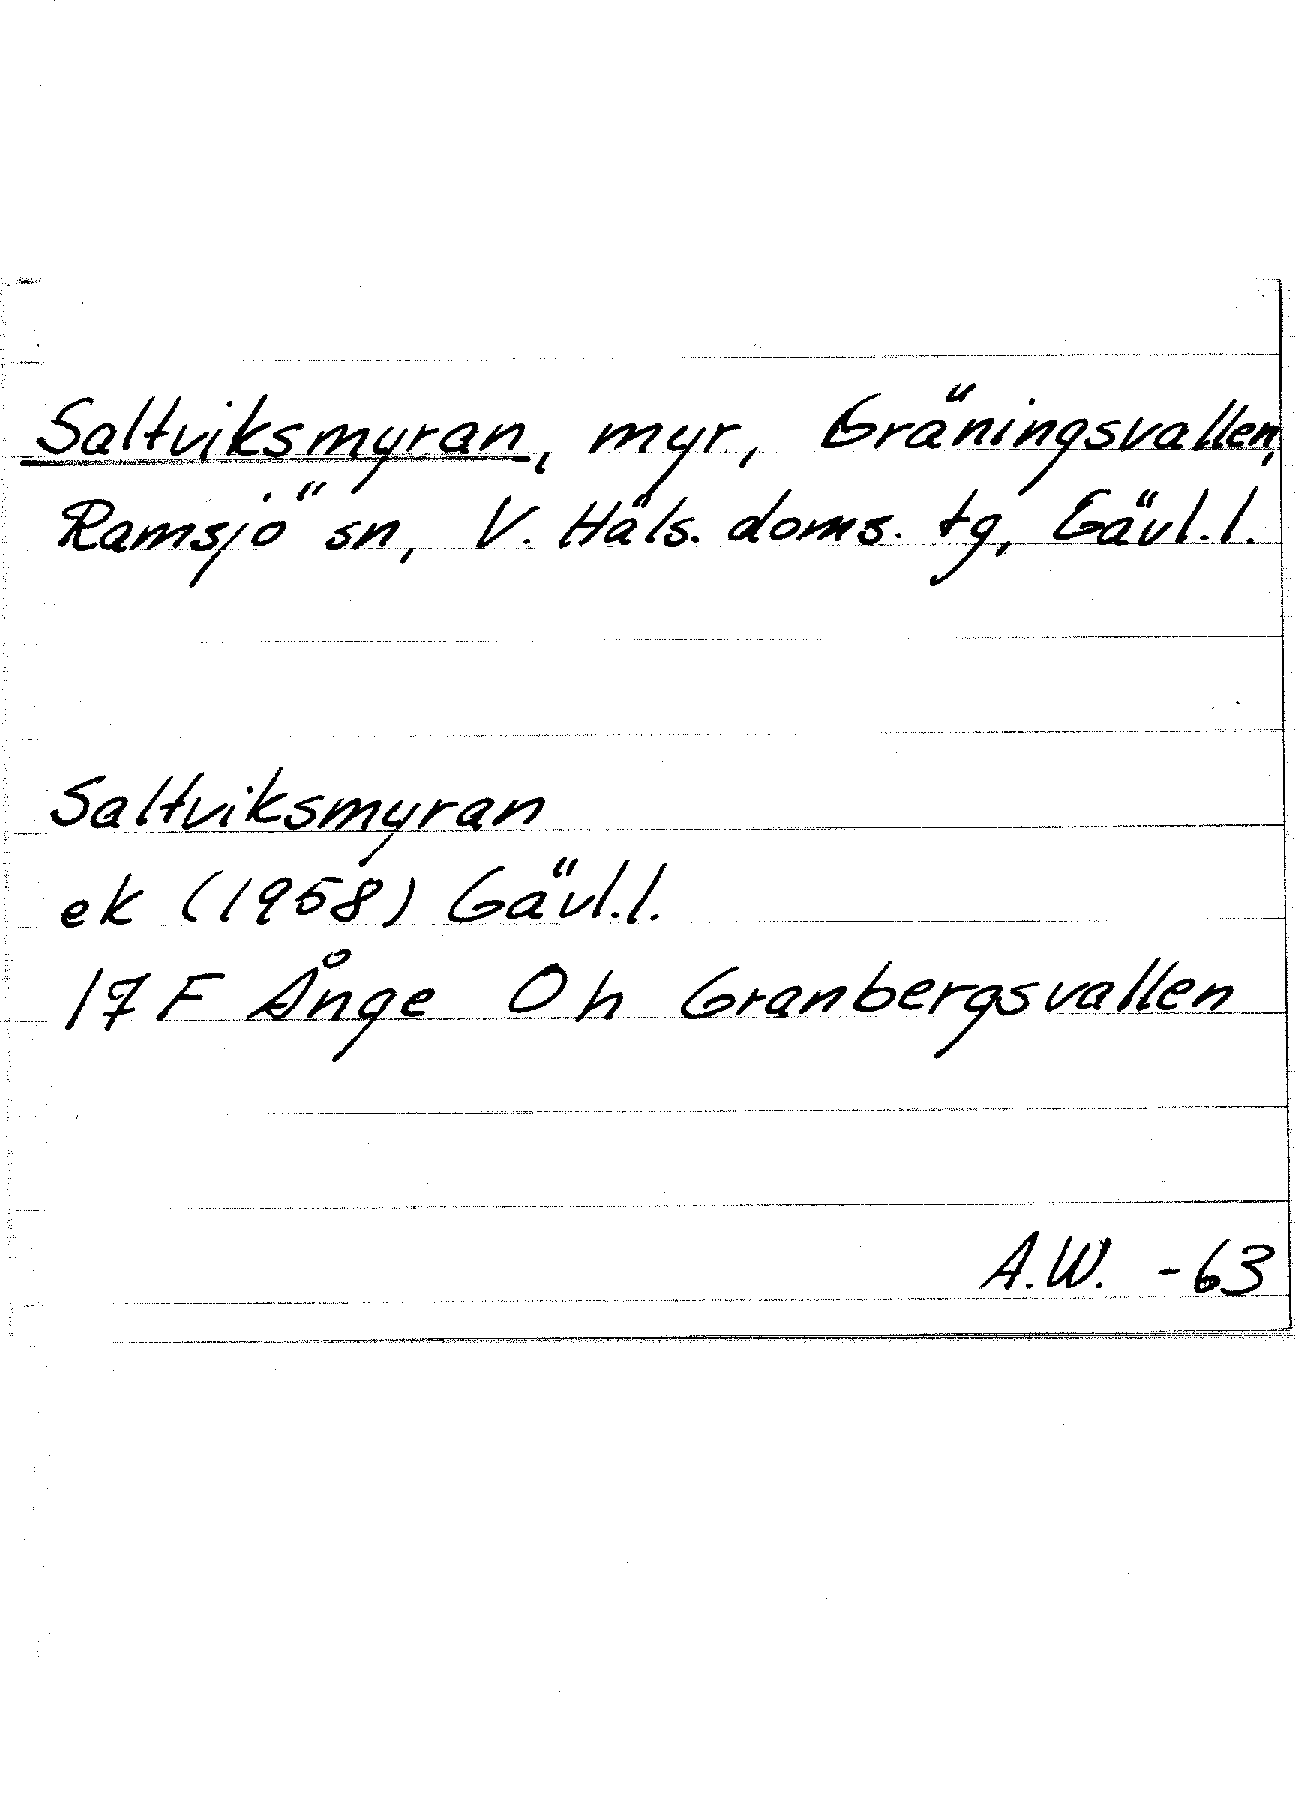 Saltviksmyran, myr, Gräningsvallen,
Ramsjö sn, V. Häls. doms. tg, Gävl.l.
Saltviksmyran
ek (1958) Gävl.l.
17 F Ånge 0 h Granbergsvallen
A.W. -63